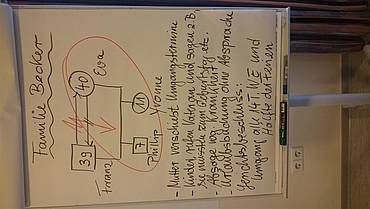 Familie Becker
40
Eva
39
Franz
11
Yvonne
7
Philipp
- Mutter verschiebt Umgangstermine
- Kinder rufen Vater an und sagen z.B.
sie müssten zum Geburtstag etc.
- Absage wg. Krankheit
- Urlaubsbuchung ohne Absprache
Gerichtsbeschluss:
Umgang alle 14T. 1WE und
Hälfte der Ferien